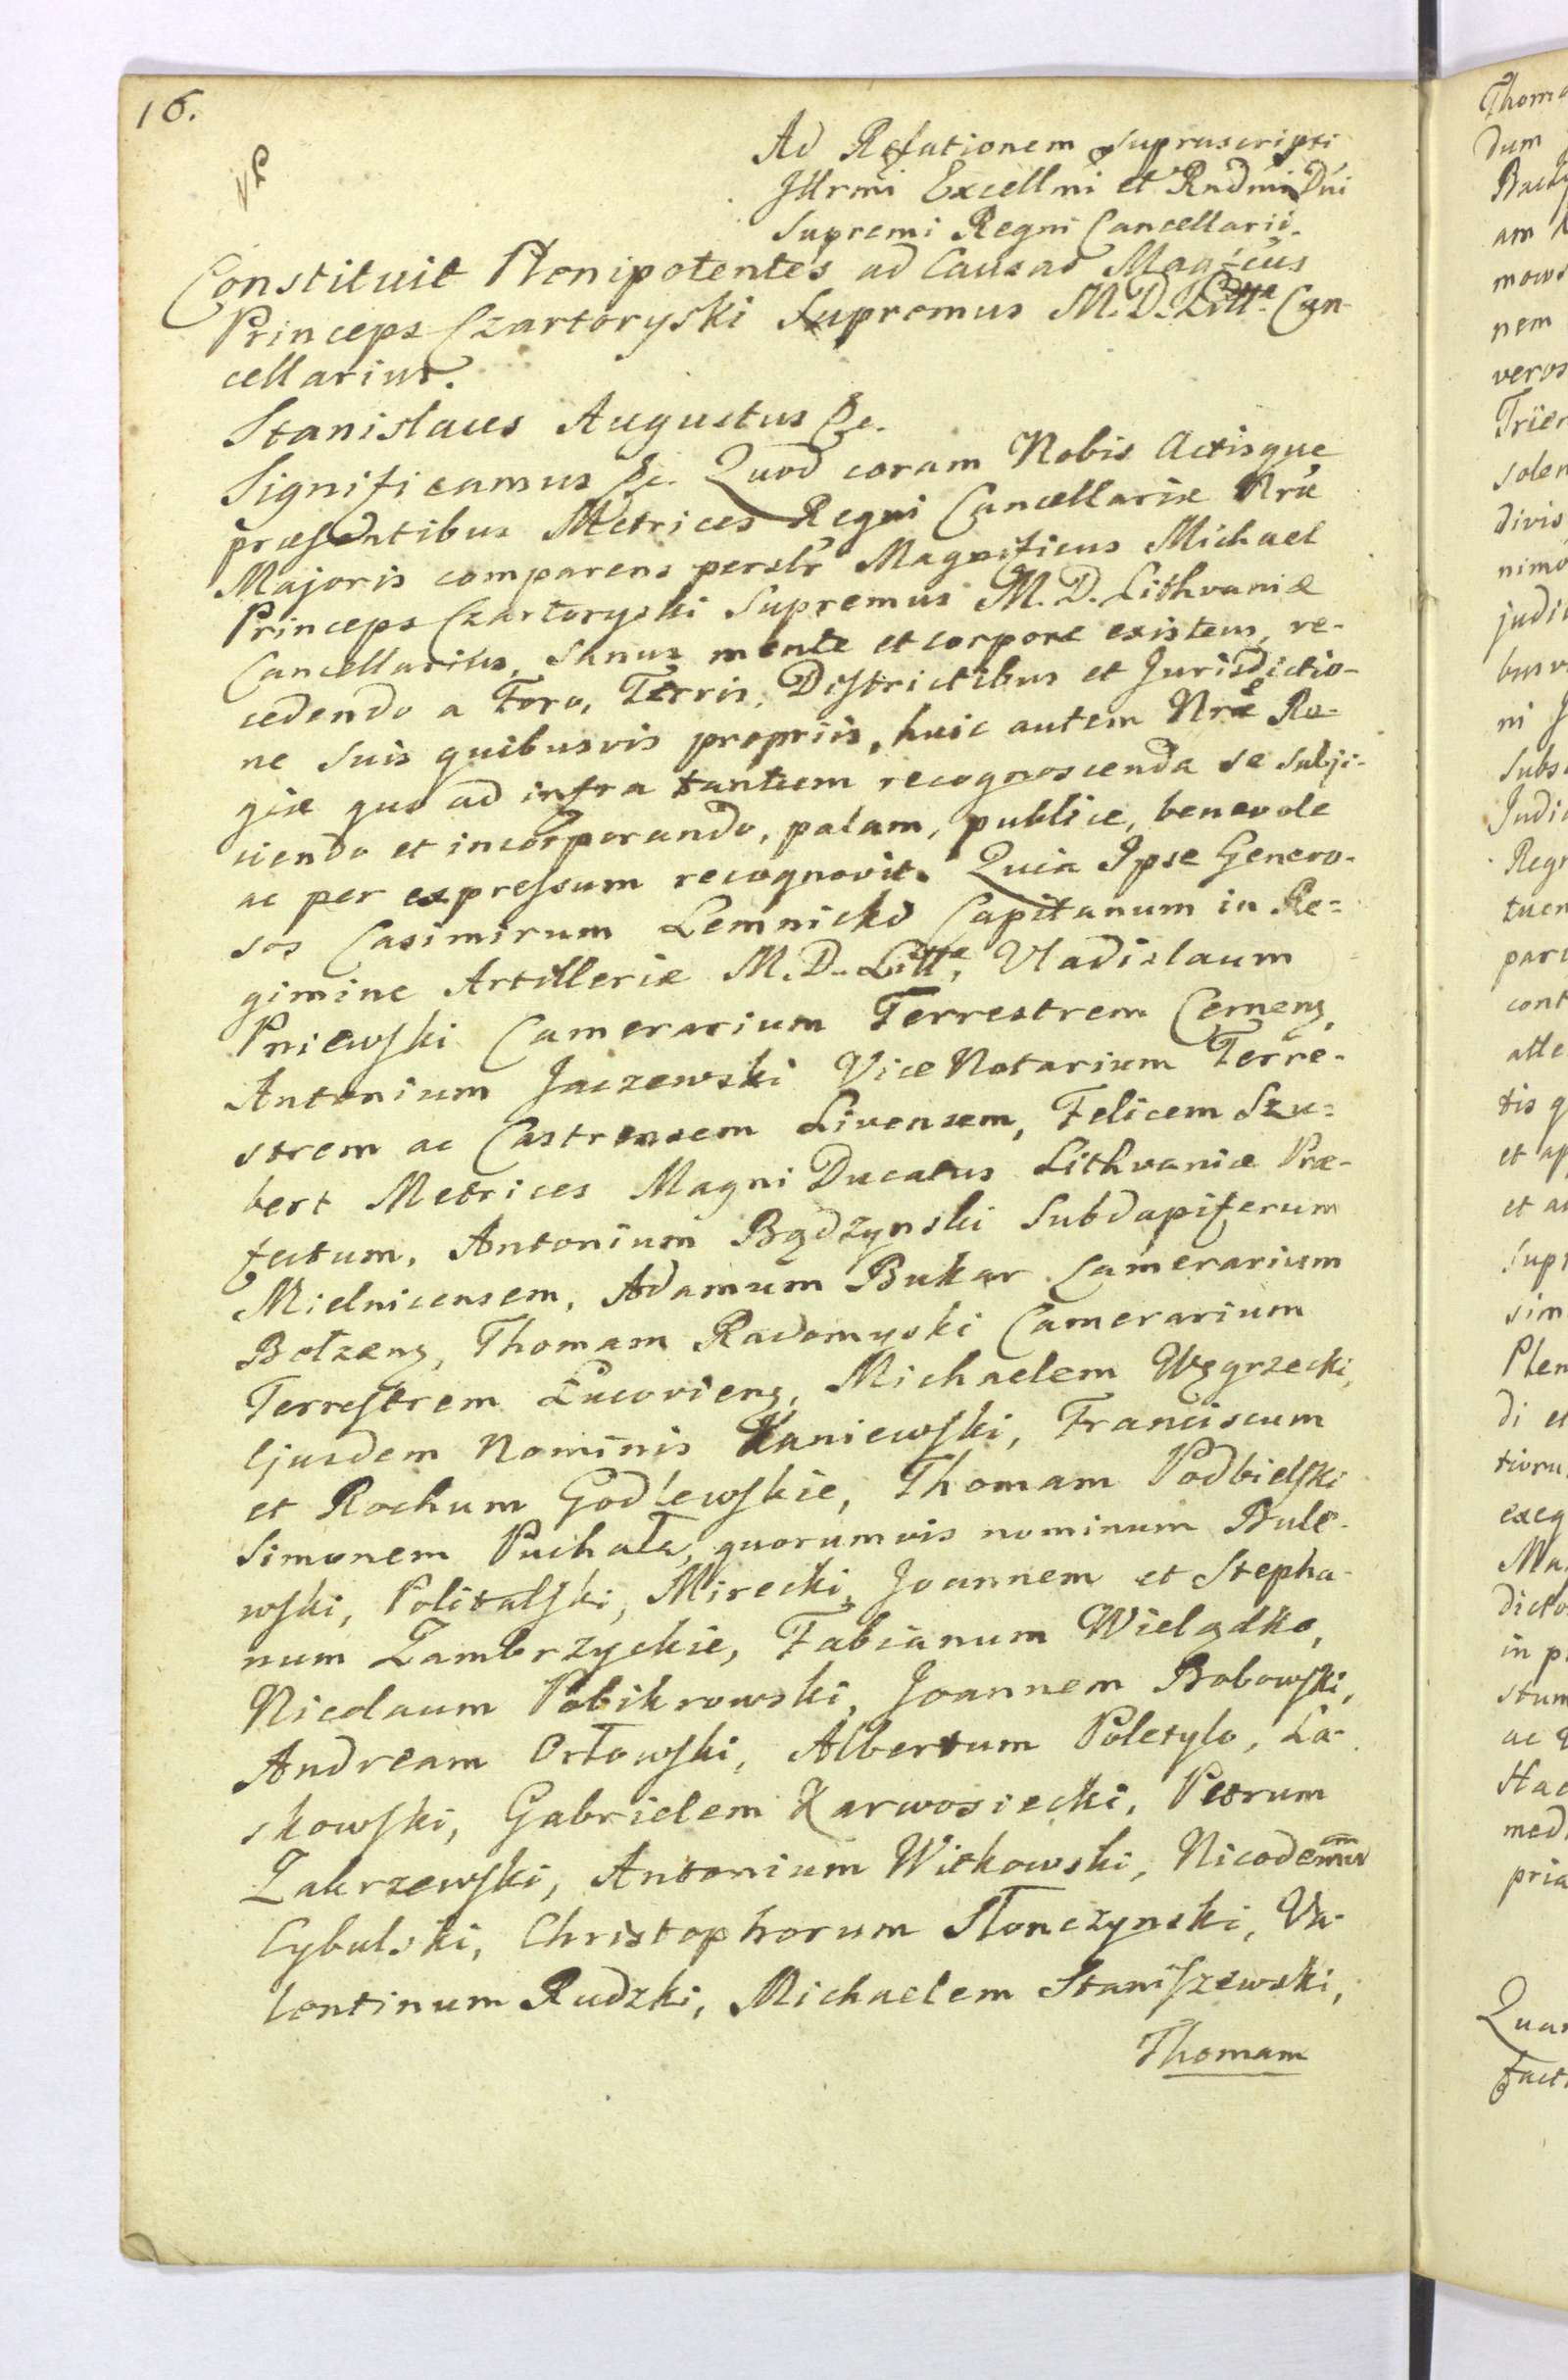 16.
Ad Relationem supruscripti
Jllrmi Excellmi et Rndmi Dni
Supremi Regni Cancellarii.
Constituit Plenipotentes ad Causas Magfcus
Princeps Czartoryski Supremus M.D. Litt. Can-
cellarius.
Stanislaus Augustus &c.
Significamus &c. Quod coram Nobis Actisque
præsentibus Metrices Regni Cancellariæ Nræ
Majoris comparens perslr Magnificus Michael
Princeps Czartoryski Supremus M.D. Lithvaniæ
Cancellarius, sanus mente et corpore existens, re-
cedendo a Foro, Terris, Districtibus et Jurisdictio-
ne suis quibusvis propriis, huic autem Nræ Re-
giæ quo ad infra tantum recognoscenda se subji-
ciendo et incorporando, palam, publice, benevole
ac per expressum recognovit. Quia Ipse Genero-
sos Casimirum Lemnicki Capitanum in Re=
gimine Artilleriæ M.D. Litt., Vladislaum
Pniewski Camerarium Terrestrem Cernens,
Antonium Jaczewski Vice Notarium Terre-
strem ac Castrensem Livensem, Felicem Szu=
bert Metrices Magni Ducatus Lithvaniæ Præ-
fectum, Antonium Bądzynski Subdapiferum
Mielnicensem, Adamum Bukar Camerarium
Bełzens, Thomam Radomyski Camerarium
Terrestrem Lucoviens, Michaelem Węgrzecki,
Ejusdem Nominis Kaniewski, Franciscum
et Rochum Godlewskie, Thomam Podbielski
Simonem Puchała, quorumvis nominum Bule-
wski, Politalski, Mirecki, Joannem et Stepha-
num Zambrzyckie, Fabianum Wielądko,
Nicolaum Pobikrowski, Joannem Bobowski,
Andream Orłowski, Albertum Poletylo, La-
skowski, Gabrielem Karwosiecki, Petrum
Zakrzewski, Antonium Witkowski, Nicodemum
Cybulski, Christophorum Słonczynski, Va-
lentinum Rudzki, Michaelem Staniszewski,
Thomam